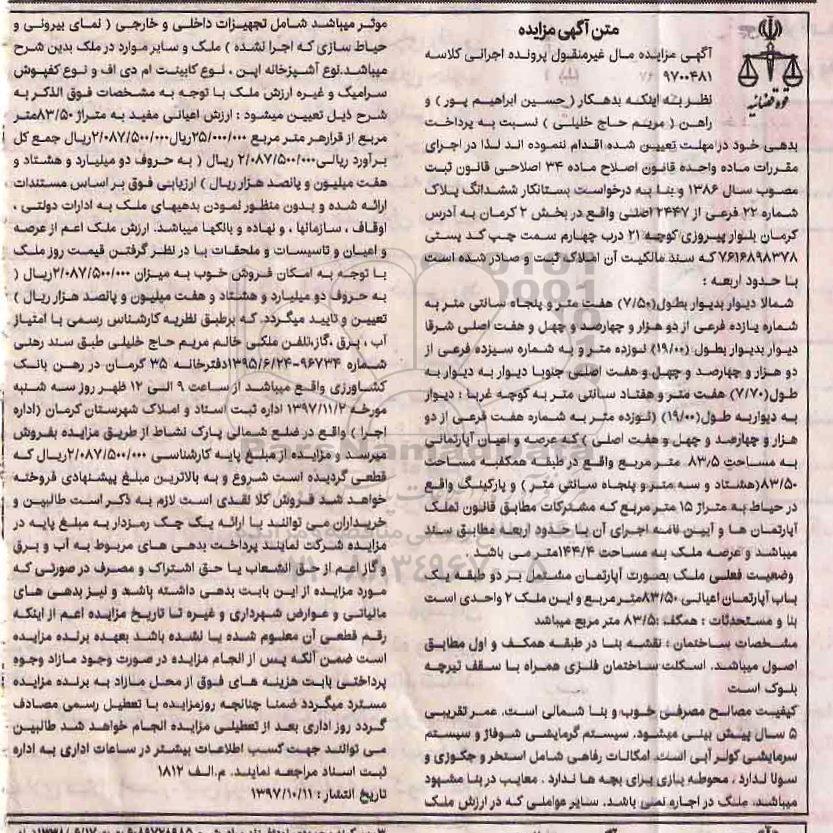 متن آگهی مزایده
آگهی مزایده مال غیرمنقول پرونده اجرائی کلاسه
۹۷۰۰۴۸۱
نظر به اینکه بدهکار (حسین ابراهیم پور) و
راهن (مریم حاج خلیلی) نسبت به پرداخت
بدهی خود در مهلت تعیین شده اقدام ننموده اند لذا در اجرای
مقررات ماده واحده قانون اصلاح ماده ۳۴ اصلاحی قانون ثبت
مصوب سال ۱۳۸۶ و بنا به درخواست بستانکار ششدانگ پلاک
شماره ۲۲ فرعی از ۲۴۴۷ اصلی واقع در بخش ۲ کرمان به آدرس
کرمان بلوار پیروزی کوچه ۲۱ درب چهارم سمت چپ کد پستی
۷۶۱۶۸۹۸۳۷۸ که سند مالکیت آن املاک ثبت و صادر شده است
با حدود اربعه :
شمالا دیوار بدیوار بطول(۷/۵۰) هفت متر و پنجاه سانتی متر به
شماره یازده فرعی از دو هزار و چهارصد و چهل و هفت اصلی شرقا
دیوار بدیوار بطول (۱۹/۰۰) نوزده متر و به شماره سیزده فرعی از
دو هزار و چهارصد و چهل و هفت اصلی جنوبا دیوار به دیوار به
طول(۷/۷۰) هفت متر و هفتاد سانتی متر به کوچه غربا : دیوار
به دیواربه طول(۱۹/۰۰) (نوزده متر به شماره هفت فرعی از دو
هزار و چهارصد و چهل و هفت اصلی ) که عرصه و اعیان آپارتمانی
به مساحت ۸۳/۵ متر مربع واقع در طبقه همکفبه مساحت
۸۳/۵۰(هشتاد و سه متر و پنجاه سانتی متر ) و پارکینگ واقع
در حیاط به متراژ ۱۵ متر مربع که مشترکات مطابق قانون تملک
آپارتمان ها و آیین نامه اجرای آن با حدود اربعه مطابق سند
میباشد و عرصه ملک به مساحت ۱۴۴/۴متر می باشد .
وضعیت فعلی ملک بصورت آپارتمان مشتمل بر دو طبقه یک
باب آپارتمان اعیانی ۸۳/۵۰متر مربع و این ملک ۲ واحدی است
بنا و مستحدثات : همکف :۸۳/۵ متر مربع میباشد
مشخصات ساختمان : نقشه بنا در طبقه همکف و اول مطابق
اصول میباشد. اسکلت ساختمان فلزی همراه با سقف تیرچه
بلوک است
کیفیت مصالح مصرفی خوب و بنا شمالی است. عمر تقریبی
۵ سال پیش بینی میشود. سیستم گرمایشی شوفاژ و سیستم
سرمایشی کولر آبی است. امکانات رفاهی شامل استخر و جکوزی و
سونا ندارد . محوطه بازی برای بچه ها ندارد . معایب در بنا مشهود
میباشد. ملک در اجاره نمی باشد. سایر عواملی که در ارزش ملک
موثر میباشد شامل تجهیزات داخلی و خارجی ( نمای بیرونی و
حیاط سازی که اجرا نشده ) ملک و سایر موارد در ملک بدین شرح
میباشد.نوع آشپزخانه اپن ، نوع کابینت ام دی اف و نوع کفپوش
سرامیک و غیره ارزش ملک با توجه به مشخصات فوق الذکر به
شرح ذیل تعیین میشود : ارزش اعیانی مفید به متراژ ۸۳/۵۰متر
مربع از قرارهر متر مربع ۲۵/۰۰۰/۰۰۰ریال۲/۰۸۷/۵۰۰/۰۰۰ریال جمع کل
برآورد ریالی۲/۰۸۷/۵۰۰/۰۰۰ ریال ( به حروف دو میلیارد و هشتاد و
هفت میلیون و پانصد هزار ریال ) ارزیابی فوق بر اساس مستندات
ارائه شده و بدون منظور نمودن بدهیهای ملک به ادارات دولتی ،
اوقاف ، سازمانها ، و نهاده و بانکها میباشد. ارزش ملک اعم از عرصه
و اعیان و تاسیسات و ملحقات با در نظر گرفتن قیمت روز ملک
با توجه به امکان فروش خوب به میزان ۲/۰۸۷/۵۰۰/۰۰۰ریال (
به حروف دو میلیارد و هشتاد و هفت میلیون و پانصد هزار ریال )
تعیین و تایید میگردد. که برطبق نظریه کارشناس رسمی با امتیاز
آب ، برق ،گاز،تلفن ملکی خانم مریم حاج خلیلی طبق سند رهنی
شماره ۹۶۷۳۴-۱۳۹۵/۶/۲۴دفترخانه ۳۵ کرمان در رهن بانک
کشاورزی واقع میباشد از ساعت ۹ الی ۱۲ ظهر روز سه شنبه
مورخه ۱۳۹۷/۱۱/۲ اداره ثبت اسناد و املاک شهرستان کرمان (اداره
اجرا ) واقع در ضلع شمالی پارک نشاط از طریق مزایده بفروش
میرسد و مزایده از مبلغ پایه کارشناسی ۲/۰۸۷/۵۰۰/۰۰۰ریال که
قطعی گردیده است شروع و به بالاترین مبلغ پیشنهادی فروخته
خواهد شد فروش کلا نقدی است لازم به ذکر است طالبین و
خریداران می توانند با ارائه یک چک رمزدار به مبلغ پایه در
مزایده شرکت نمایند پرداخت بدهی های مربوط به آب و برق
و گاز اعم از حق انشعاب یا حق اشتراک و مصرف در صورتی که
مورد مزایده از این بابت بدهی داشته باشد و نیز بدهی های
مالیاتی و عوارض شهرداری و غیره تا تاریخ مزایده اعم از اینکه
رقم قطعی آن معلوم شده یا نشده باشد بعهده برنده مزایده
است ضمن آنکه پس از انجام مزایده در صورت وجود مازاد وجوه
پرداختی بابت هزینه های فوق از محل مازاد به برنده مزایده
مسترد میگردد ضمنا چنانچه روزمزایده با تعطیل رسمی مصادف
گردد روز اداری بعد از تعطیلی مزایده انجام خواهد شد طالبین
می توانند جهت کسب اطلاعات بیشتر در ساعات اداری به اداره
ثبت اسناد مراجعه نمایند. م.الف ۱۸۱۲
تاریخ انتشار : ۱۳۹۷/۱۰/۱۱